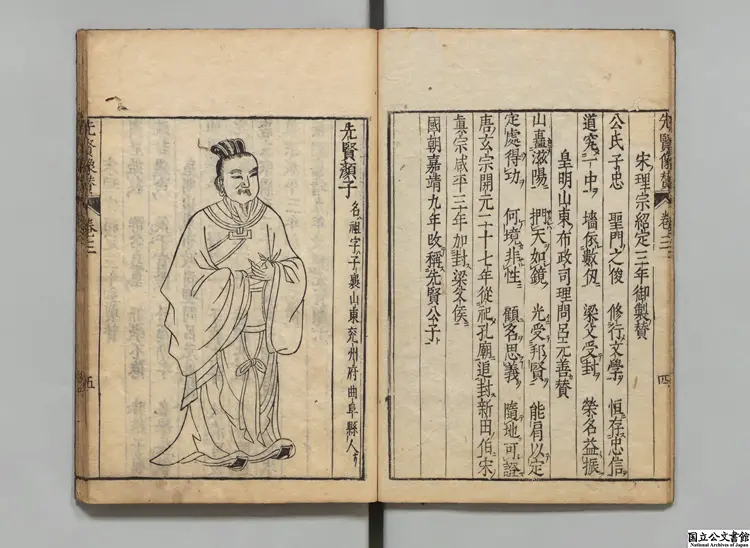 先賢像賛 卷之二 四
宋理宗紹定三年御製賛
公氏子忠 聖門之俊 修行文學 恒存忠信
道究一中 墻依數仭 梁父受封 榮名益振
皇明山東布政司理問呂元善賛
山矗滋陽 捫天如鏡 光受邦賢 能肩以定
定處得功 何境非性 顧名思義 隨地可證
唐玄宗開元二十七年從祀孔廟追封新田伯宋
眞宗咸平三年加封梁父侯
國朝嘉靖九年改稱先賢公子
先賢顔子 名祖字子襄山東兖州府曲阜縣人
先賢像賛 卷之二 五
国立公文書館
National Archives of Japan